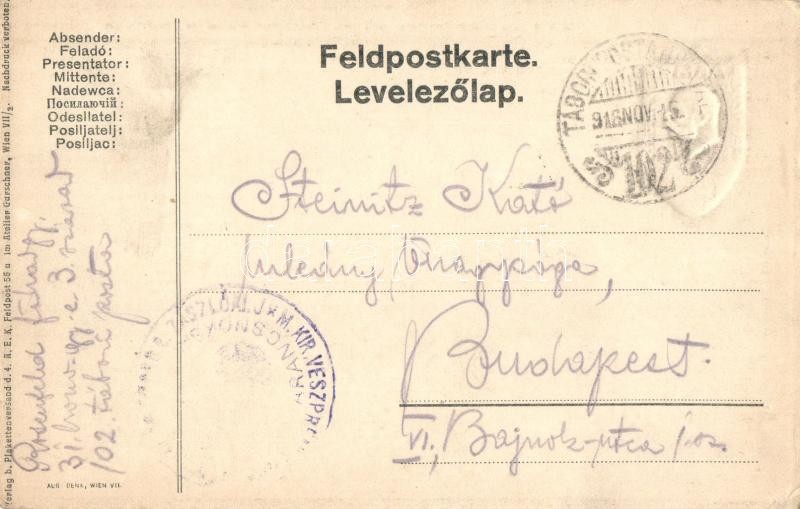 Absender:
Feladó:
Presentator:
Mittente:
Nadewca:
Посилаючій:
Odesílatel:
Posiljatelj:
Posiljac:
Feldpostkarte.
Levelezőlap.
TÁBORI POSTA
916 NOV. 15.
Steinitz Kató
úrleány Őnagysága,
Budapest.
VI., Bajnok-utca
Rosenfeld
31. honv. gy. e. 3. század
102. tábori posta
M. KIR. VESZPRÉM
ZÁSZLÓALJ
Verlag b. Plakettenversand d. 4. A. E. K. Feldpost 55 u. im Atelier Gurschner, Wien VII/2. Nachdruck verboten.
AUG DENK, WIEN VII.